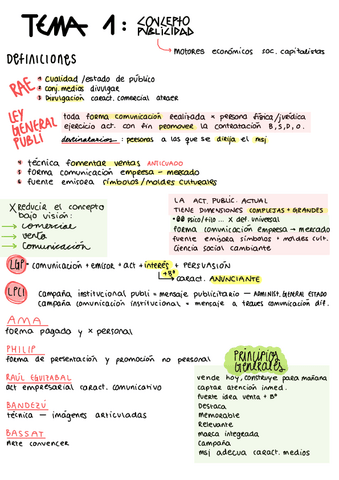 TEMA 1: CONCEPTO PUBLICIDAD
motores económicos soc. capitalistas
DEFINICIONES
RAE
Cualidad /estado de público
conj. medios divulgar
Divulgación caract. comercial atraer
LEY GENERAL PUBLI
toda forma comunicación realizada x persona física/jurídica
ejercicio act. con fin promover la contratación B, S, D, O.
destinatarios: personas a las que se dirija el msj
técnica fomentar ventas ANTICUADO
forma comunicación empresa - mercado
fuente emisora símbolos/moldes culturales
X reducir el concepto
bajo visión:
comercial
venta
comunicación
LA ACT. PUBLIC. ACTUAL
TIENE DIMENSIONES COMPLEJAS + GRANDES
pto psico/filo ... x def. universal
forma comunicación empresa → mercado
fuente emisora símbolos + moldes cult.
Ciencia social cambiante
LGP = comunicación + emisor + act + interés + PERSUASIÓN
+Bº
caract. ANUNCIANTE
LPCI
Campaña institucional publi = mensaje publicitario - ADMINIST. GENERAL ESTADO
campaña comunicación institucional = mensaje a traves comunicación dif.
AMA
forma pagado y x personal
PHILIP
forma de presentación y promoción no personal
RAÚL EGUIZABAL
act empresarial caract. comunicativo
BANDEZÚ
técnica - imágenes articuladas
BASSAT
Arte convencer
PRINCIPIOS GENERALES
vende hoy, construye para mañana
captar atención inmed.
fuerte idea venta + Bº
Destaca
Memorable
Relevante
marca integrada
Campaña
msj adecua caract. medios